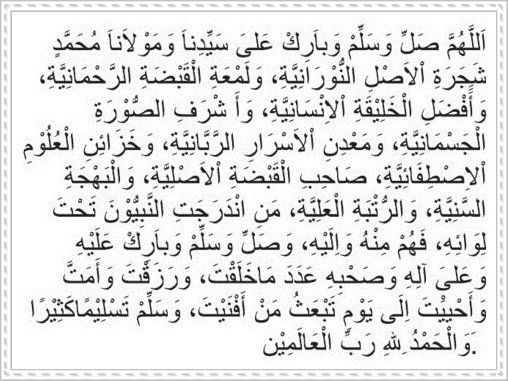 اَللَّهُمَّ صَلِّ وَسَلِّمْ وَبَارِكْ عَلىَ سَيِّدِناَ وَمَوْلاَناَ مُحَمَّدٍ
شَجَرَةِ اْلاَصْلِ النُّوْرَانِيَّةِ، وَلَمْعَةِ الْقَبْضَةِ الرَّحْمَانِيَّةِ،
وَأَفْضَلِ الْخَلِيْقَةِ اْلاِنْسَانِيَّةِ، وَأَ شْرَفِ الصُّوْرَةِ
الْجَسْمَانِيَّةِ، وَمَعْدِنِ اْلاَسْرَارِ الرَّبَّانِيَّةِ، وَخَزَائِنِ الْعُلُوْمِ
اْلاِصْطِفَائِيَّةِ، صَاحِبِ الْقَبْضَةِ اْلاَصْلِيَّةِ، وَالْبَهْجَةِ
السَّنِيَّةِ، وَالرُّتْبَةِ الْعَلِيَّةِ، مَنِ انْدَرَجَتِ النَّبِيُّوْنَ تَحْتَ
لِوَائِهِ، فَهُمْ مِنْهُ وَاِلَيْهِ، وَصَلِّ وَسَلِّمْ وَبَارِكْ عَلَيْهِ
وَعَلىَ آلِهِ وَصَحْبِهِ عَدَدَ مَاخَلَقْتَ، وَرَزَقْتَ وَأَمَتَّ
وَأَحْيَيْتَ اِلَى يَوْمِ تَبْعَثُ مَنْ أَفْنَيْتَ، وَسَلِّمْ تَسْلِيْمًاكَثِيْرًا
وَالْحَمْدُ ِللهِ رَبِّ الْعَالَمِيْن.